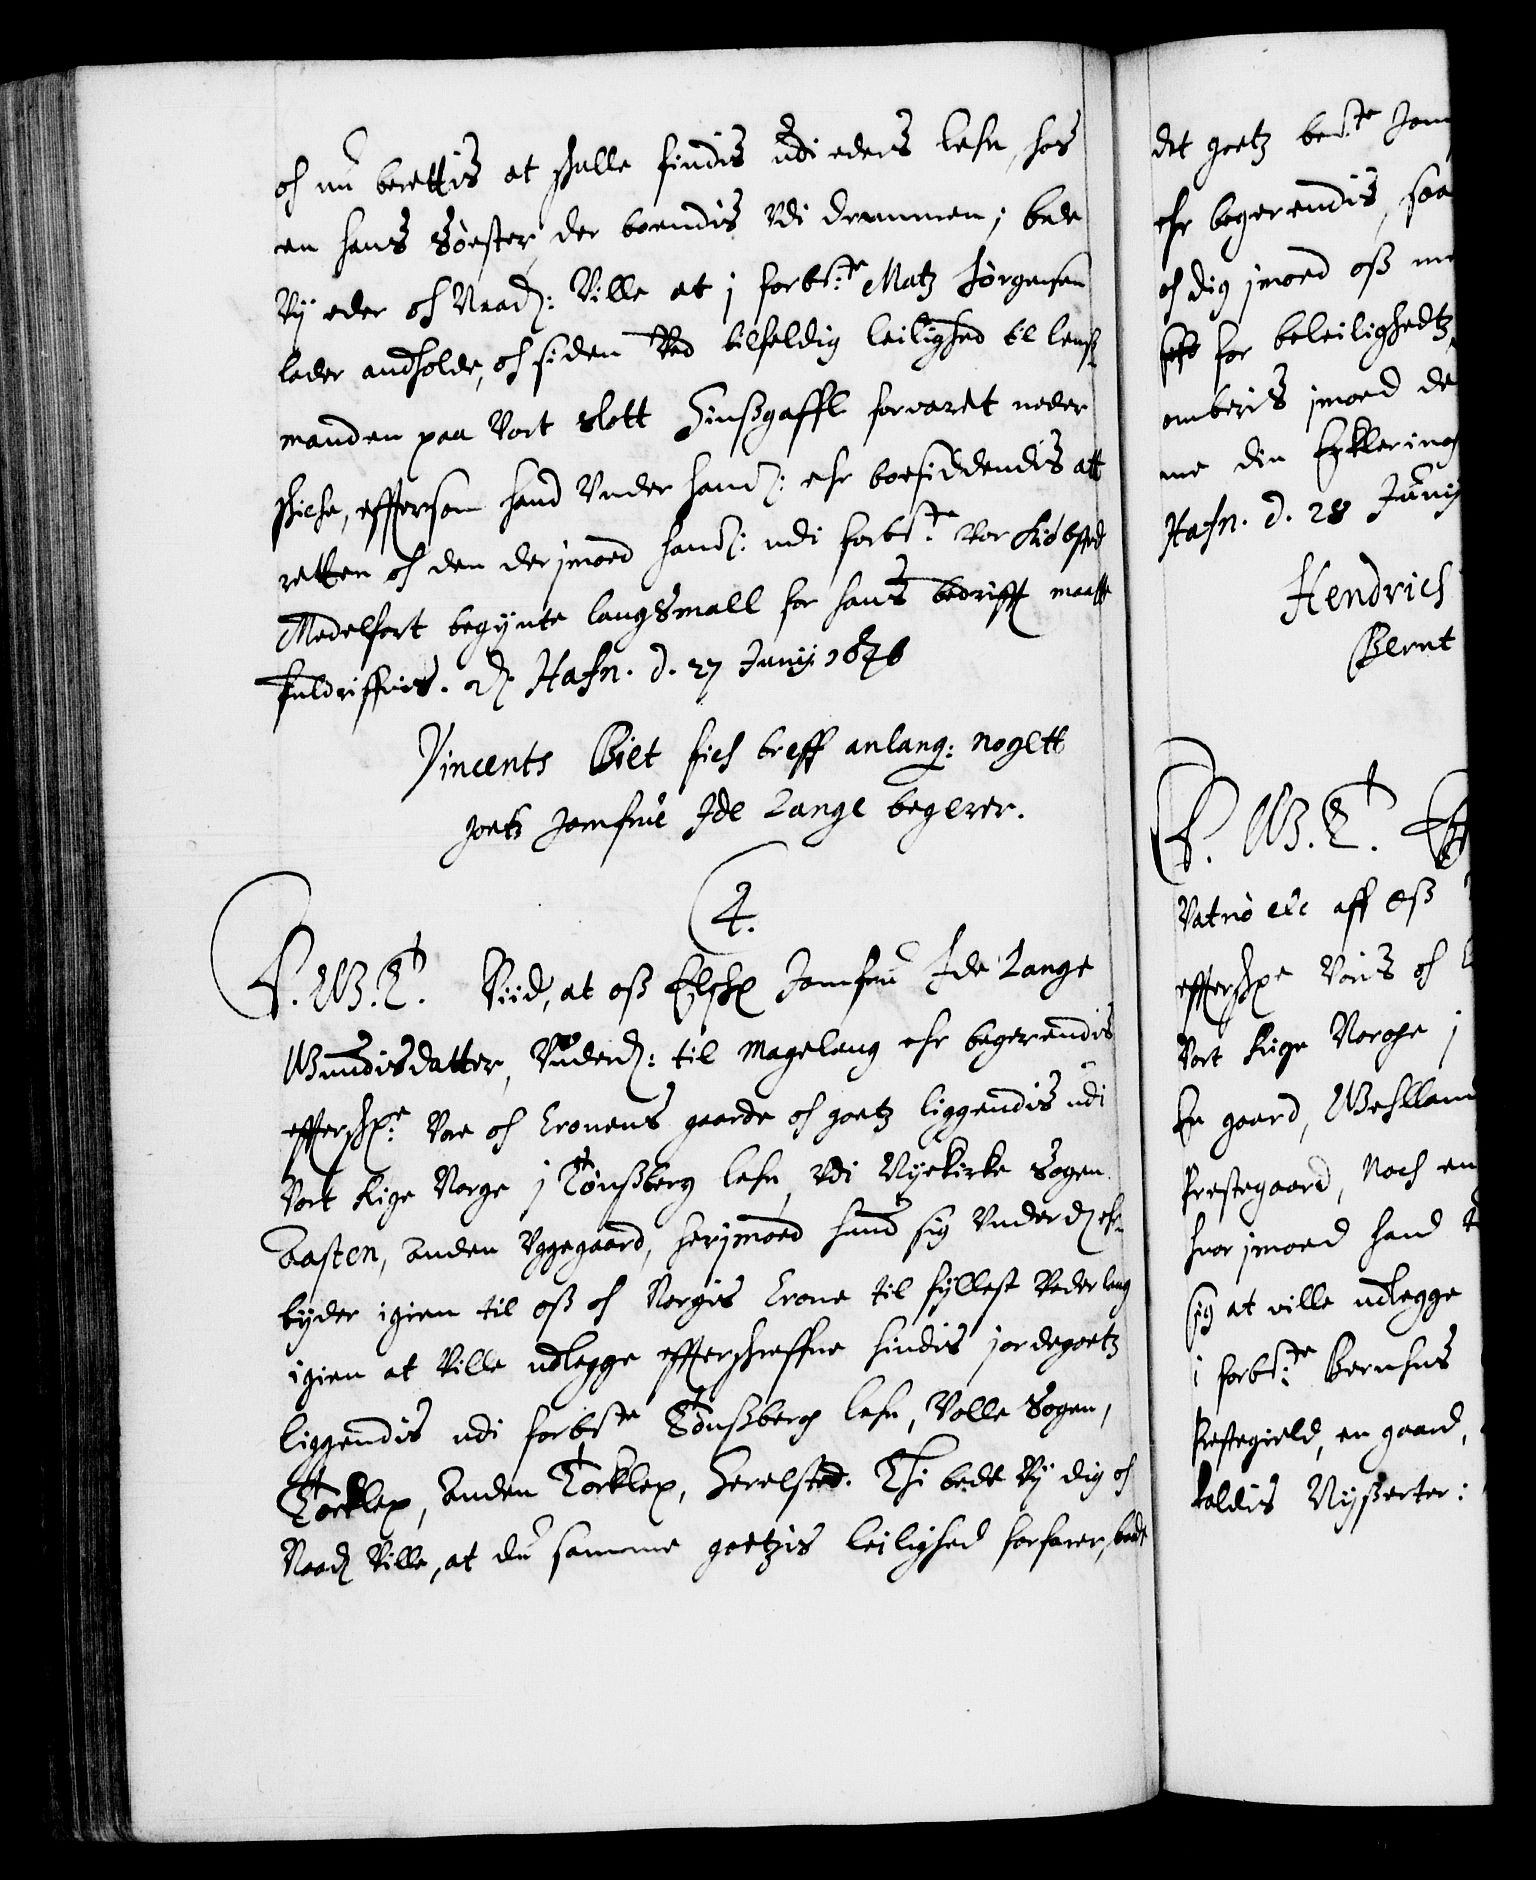 och nu berettis at schulle findis udi eders lehn, hos
en hans Søester, der boendis udi Drammen; bede
Vy eder och Naad: Ville at j forb:te Matz Jørgensen
lader andholde, och siden Ved tilfeldig leilighed til lens
manden paa Vort Slott Hinsgaffl forvaret neder
schiche, efftersom hand Under hand: ehr boesiddendis att
retten och den der jmoed hand: udi forb:te Vor Kiøbsted
Medelfort begynte langsmall for hans bedrifft maatte
fuldriffvis. Hafn. d. 27 Junij 1646
Vincents Bilt fich breff anlang: nogett
goetz Jomfrue Ide Lange begerer.
4.
C. 4. W. G. T. Viid, at oß Elschl Jomfru Ide Lange
Gundisdatter, Vnderd: til Mageleng ehr begerendis
effterschr:ne Vore och Cronens gaarde och goetz liggendis udi
Vort Rige Norge j Tønßberg lehn, udi Nyekirke Sogen
Basten, anden Uggegaard, herjmoed hand sig Underd: er
byder igien til oß och Norgis Crone til fyllest Vederlaug
igien at Ville udlegge effterschreffne hindis jordegoetz
liggendis udi forb:te Tønßberg lehn, Volle Sogen,
Torklep, anden Torklep, Herelsted. Thi bede Vy dig och
Naad: Ville, at du samme goetzis leilighed forfarer, baade
dit goetz be:te Jom
ehr begerendis, saa
och dig jmoed oß me
for beleilighedtz
omberis jmoed de
me din Erklering
Hafn. d. 28 Junij
Hendrich
Bernt
C. 4. W. G. T.
Vatnø etc aff oß
effterschr:ne Voris och
Vort Rige Norge j
En gaard, Wehlland
Prestegaard, Noch en
hvorjmoed hand
sig at ville udlegge
i forb:te Bernhus
Prestegield, en gaard,
kaldis Nyßerter: